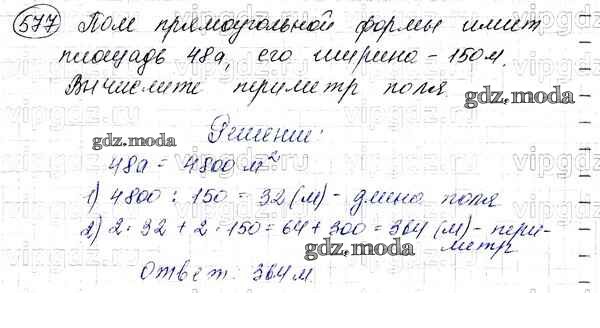 577 Поле прямоугольной формы имеет
площадь 48а, его ширина - 150м.
Вычислите периметр поля
gdz.moda
Решение:
gdz.moda
48а = 4800 м²
1) 4800 : 150 = 32 (м) - длина поля
2) 2·32 + 2·150 = 64 + 300 = 364 (м) - пери-
метр
gdz.moda
ответ: 364м.